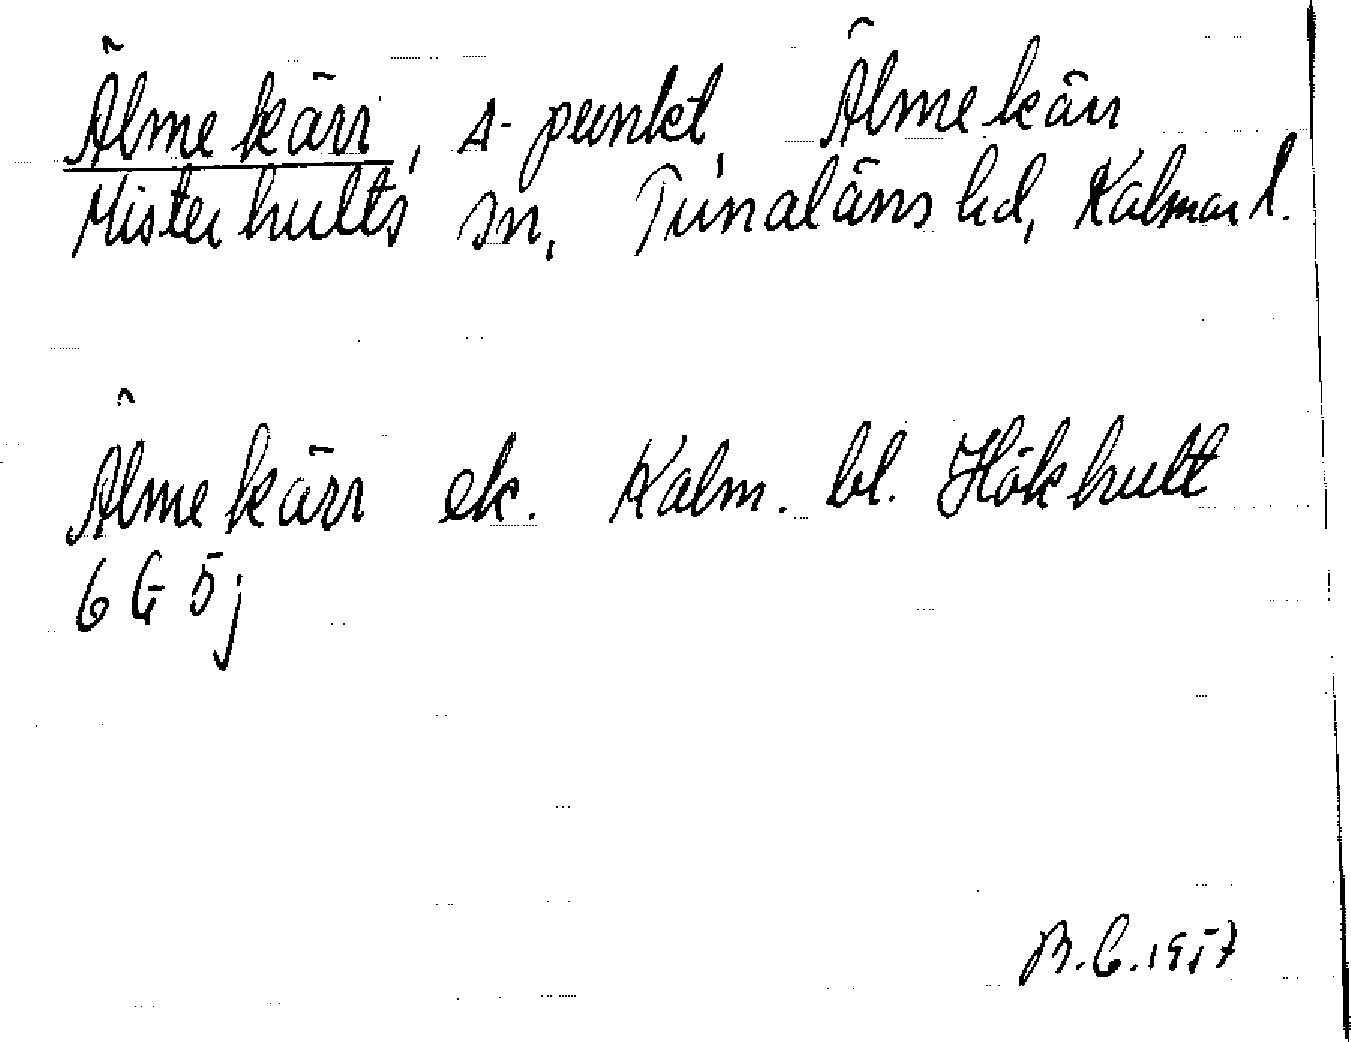 Älmekärr, s-punkt, Älmekärr
Misterhults sn, Tunaläns hd, Kalmar l.
Älmekärr ek. Kalm. bl. Hökhult
6 G 5 j
B.C. 1957